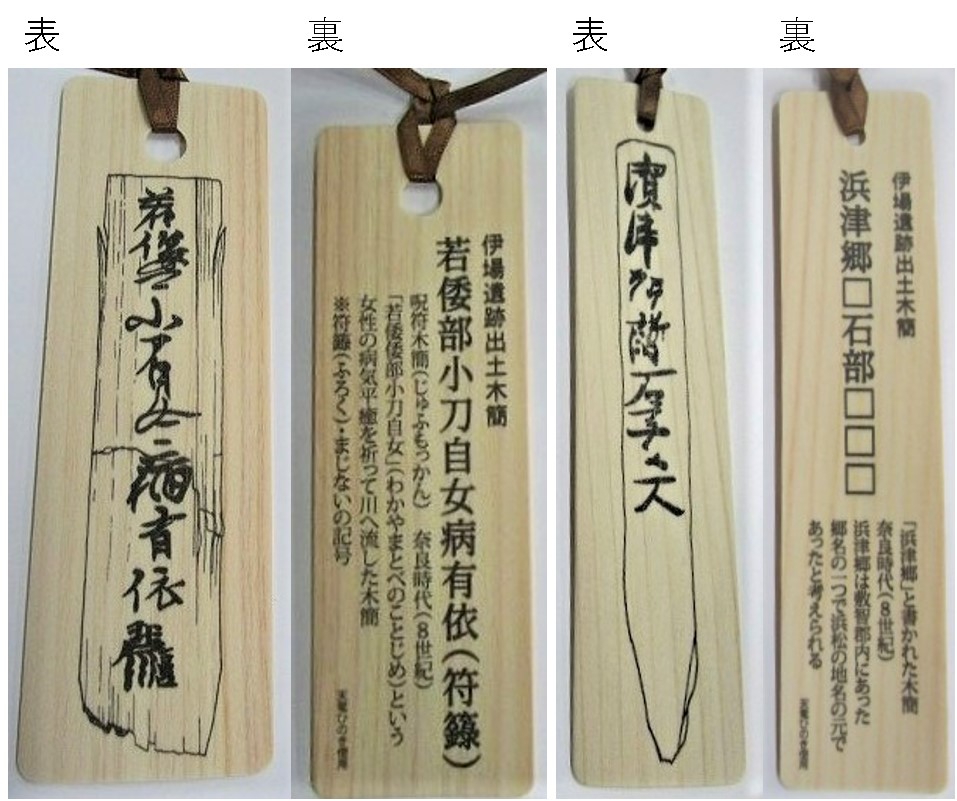 表
裏
表
裏
若倭部小刀自女病有依
伊場遺跡出土木簡
若倭部小刀自女病有依(符籙)
呪符木簡(じゅふもっかん) 奈良時代(8世紀)
「若倭部小刀自女」(わかやまとべのことじめ)という
女性の病気平癒を祈って川へ流した木簡
※符籙(ふろく)・まじないの記号
天竜ひのき使用
伊場遺跡出土木簡
浜津郷□石部□□□
「浜津郷」と書かれた木簡
奈良時代(8世紀)
浜津郷は敷智郡内にあった
郷名の一つで浜松の地名の元で
あったと考えられる
天竜ひのき使用